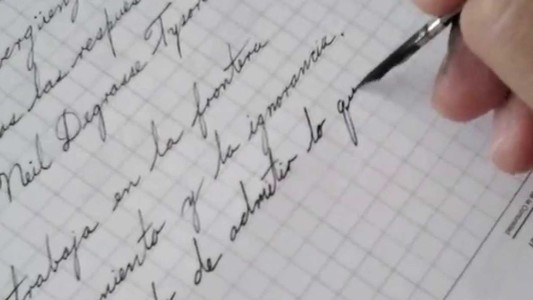 vergüenz
as las respues
Neil Degrasse Tyson
trabaja en la frontera
miento y la ignorancia.
de admitir lo qu